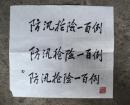 防汛抢险一百例
防汛抢险一百例
防汛抢险一百例